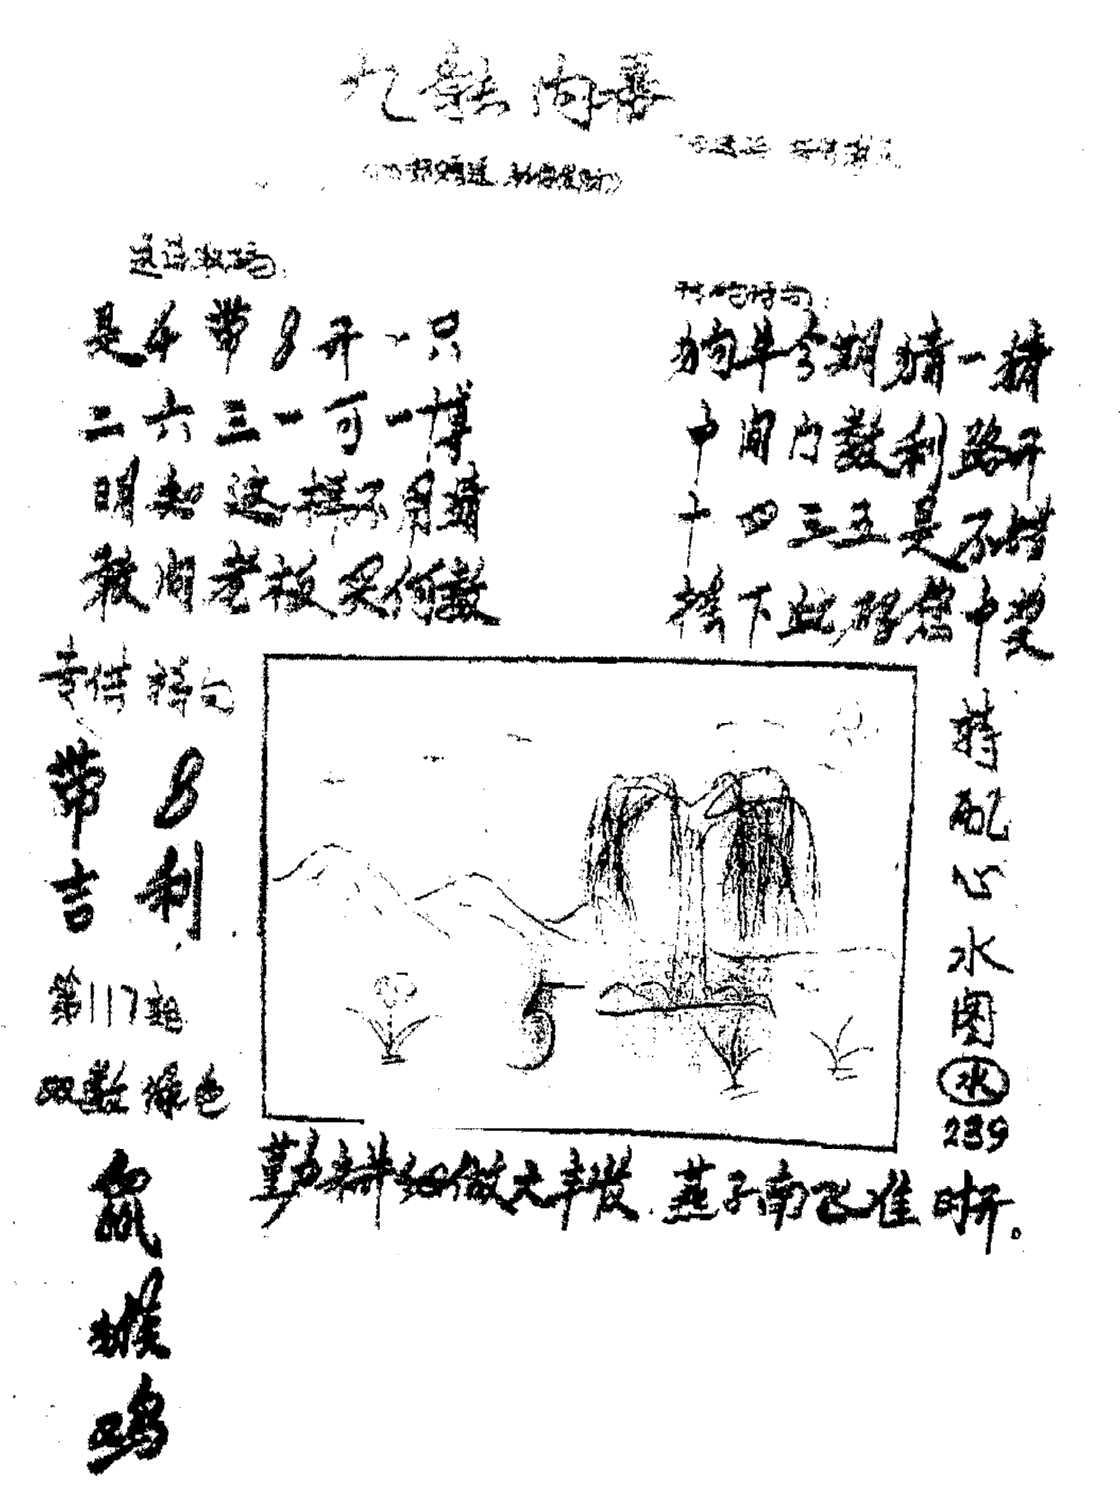 九龙内幕
送诗取码
是4带8开一只
二六三一可一博
明知这样不用猜
敢问老板买何数
特码诗句:
狗年今期猜一猜
中间门数利路开
十四三五是不错
接下此码您中奖
专供 诗句
带 8
吉 利
第117期
双数 绿色
鼠
猴
鸡
5
特配心水图
水
239
勤耕细做大丰收.燕子南飞准时开。